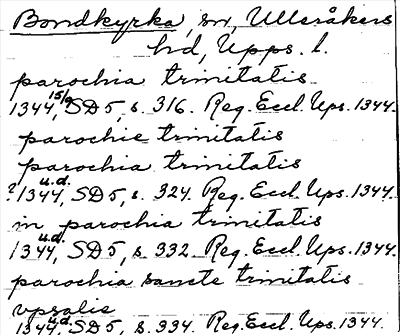 Bondkyrka, sn, Ulleråkers
hd, Upps. l.
parochia trinitatis
1344 15/9, SD 5, s. 316. Reg. Eccl. Ups. 1344.
parochie trinitatis
parochia trinitatis
? 1344 u.d., SD 5, s. 324. Reg. Eccl. Ups. 1344.
in parochia trinitatis
1344 u.d., SD 5, s. 332. Reg. Eccl. Ups. 1344.
parochia sancte trinitatis
vpsalie
1344 u.d., SD 5, s. 334. Reg. Eccl. Ups. 1344.